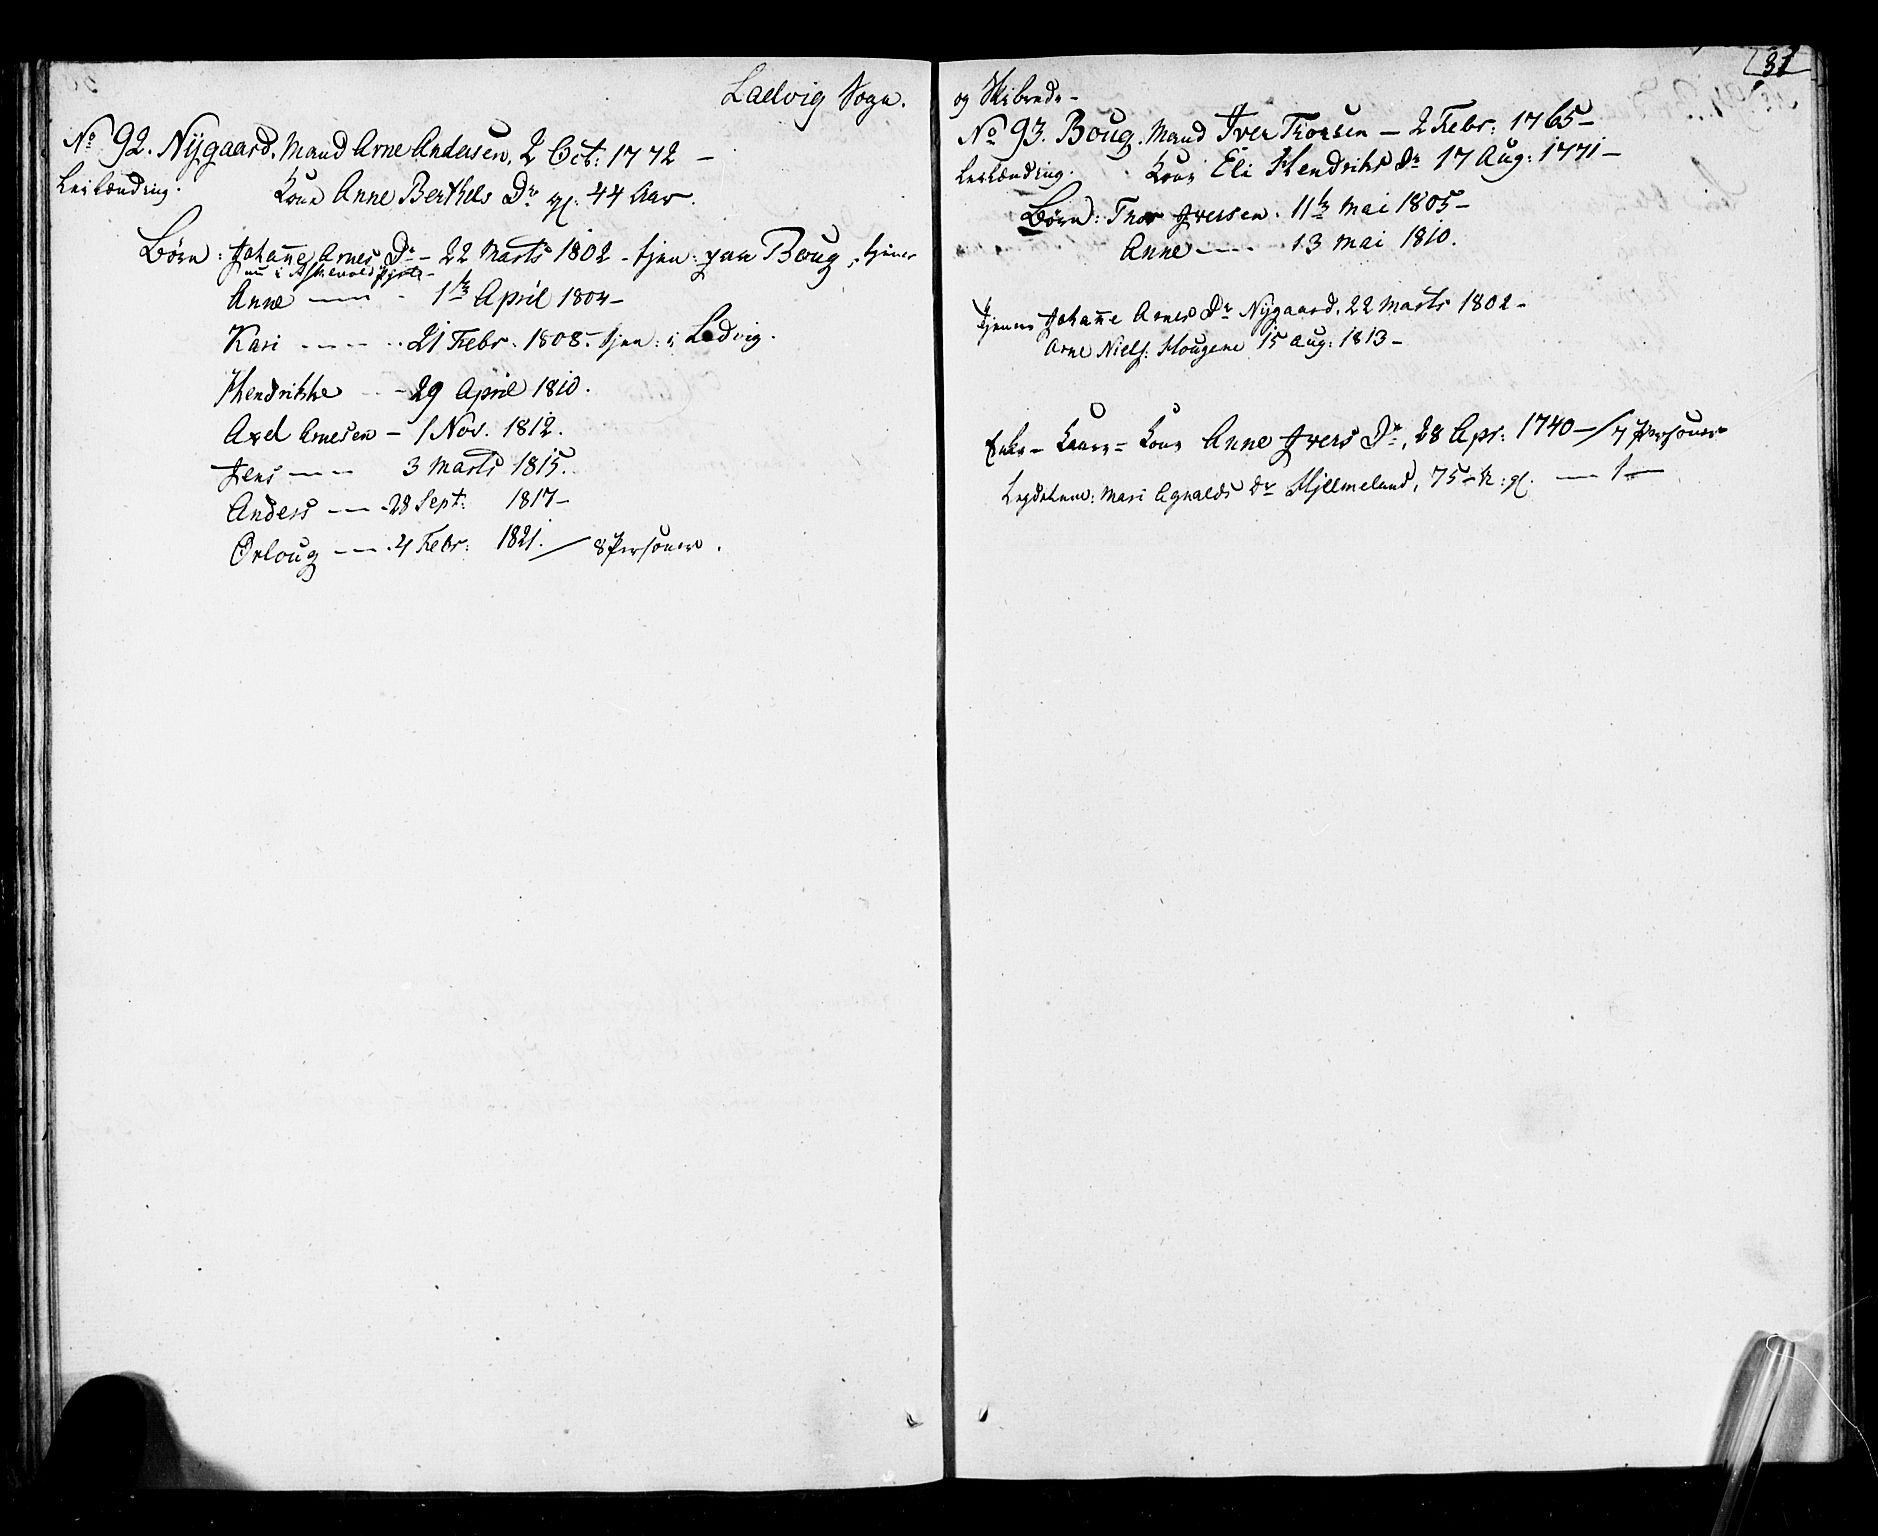 Ladvig Sogn.
No 92. Nÿgaard. Mand Arne Andersen, 2 Oct: 1772 –
Leilænding. Kone Anne Berthels Dr gl. 44 Aar.
Børn: Johan̄e Arnes Dr – 22 Marts 1802 – tjen: paa Boug, tjener
nu i Askevold
Anne —— 1ste April 1804 –
Kari ---- 21 Febr. 1808 – tjen: i Ladvig.
Hendrikke -- 29 April 1810.
Axel Arnesen – 1 Nov. 1812.
Jens —— 3 Marts 1815.
Anders --- 28 Sept: 1817 –
Orloug --- 4 Febr: 1821. / 8 Personer.
31
og Skibrede –
No 93. Boug. Mand Iver Thorsen – 2 Febr: 1765 –
Leilænding. Kone Eli Hendriks Dr 17 Aug: 1771 –
Børn: Thor Iversen. 11te Mai 1805 –
Anne ---- 13 Mai 1810.
Tjener Johan̄e Arnes Dr Nygaard. 22 Marts 1802 –
Arne Niels: Hougene 15 Aug: 1813 –
Enke – Kaar = Kone Anne Ivers Dr, 28 Apr: 1740 – / 7 Personer
Lægdelem: Mari Agnalds Dr Hjellmeland, 75 – A: gl. — 1 —